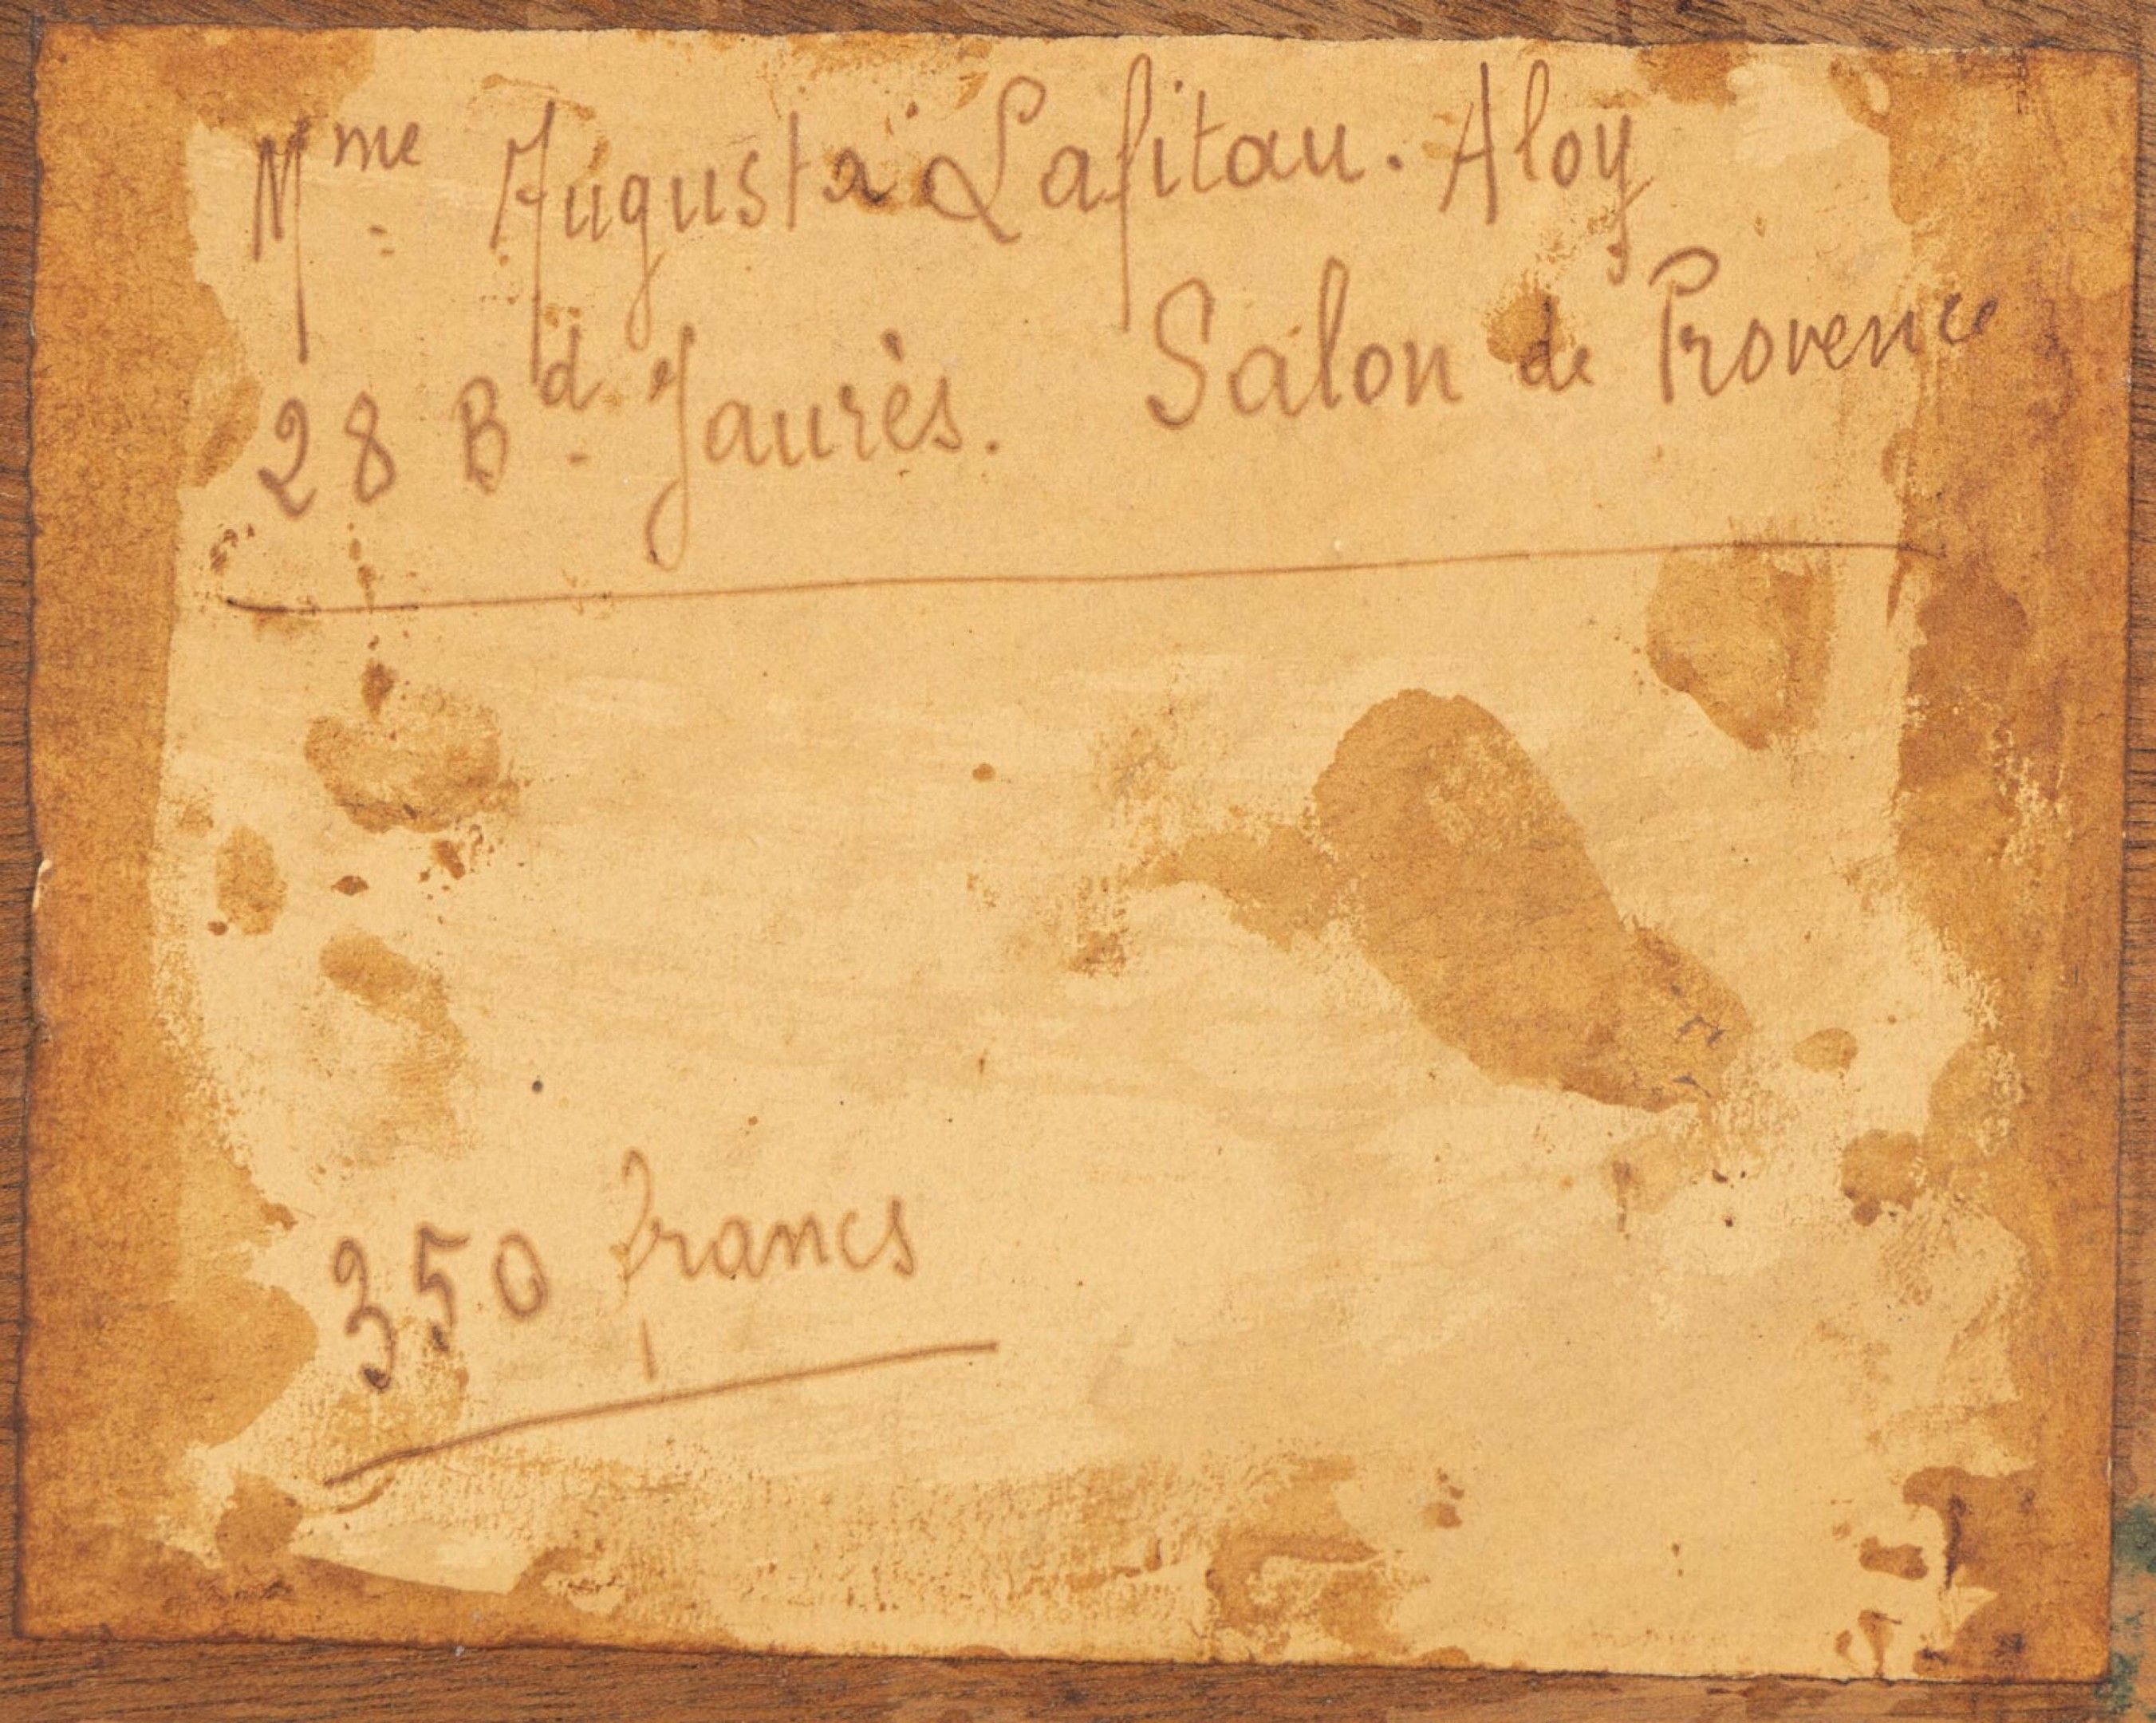 Mme Augusta Lafitau. Aloy
28 Bd. Jaurès. Salon de Provence
350 francs